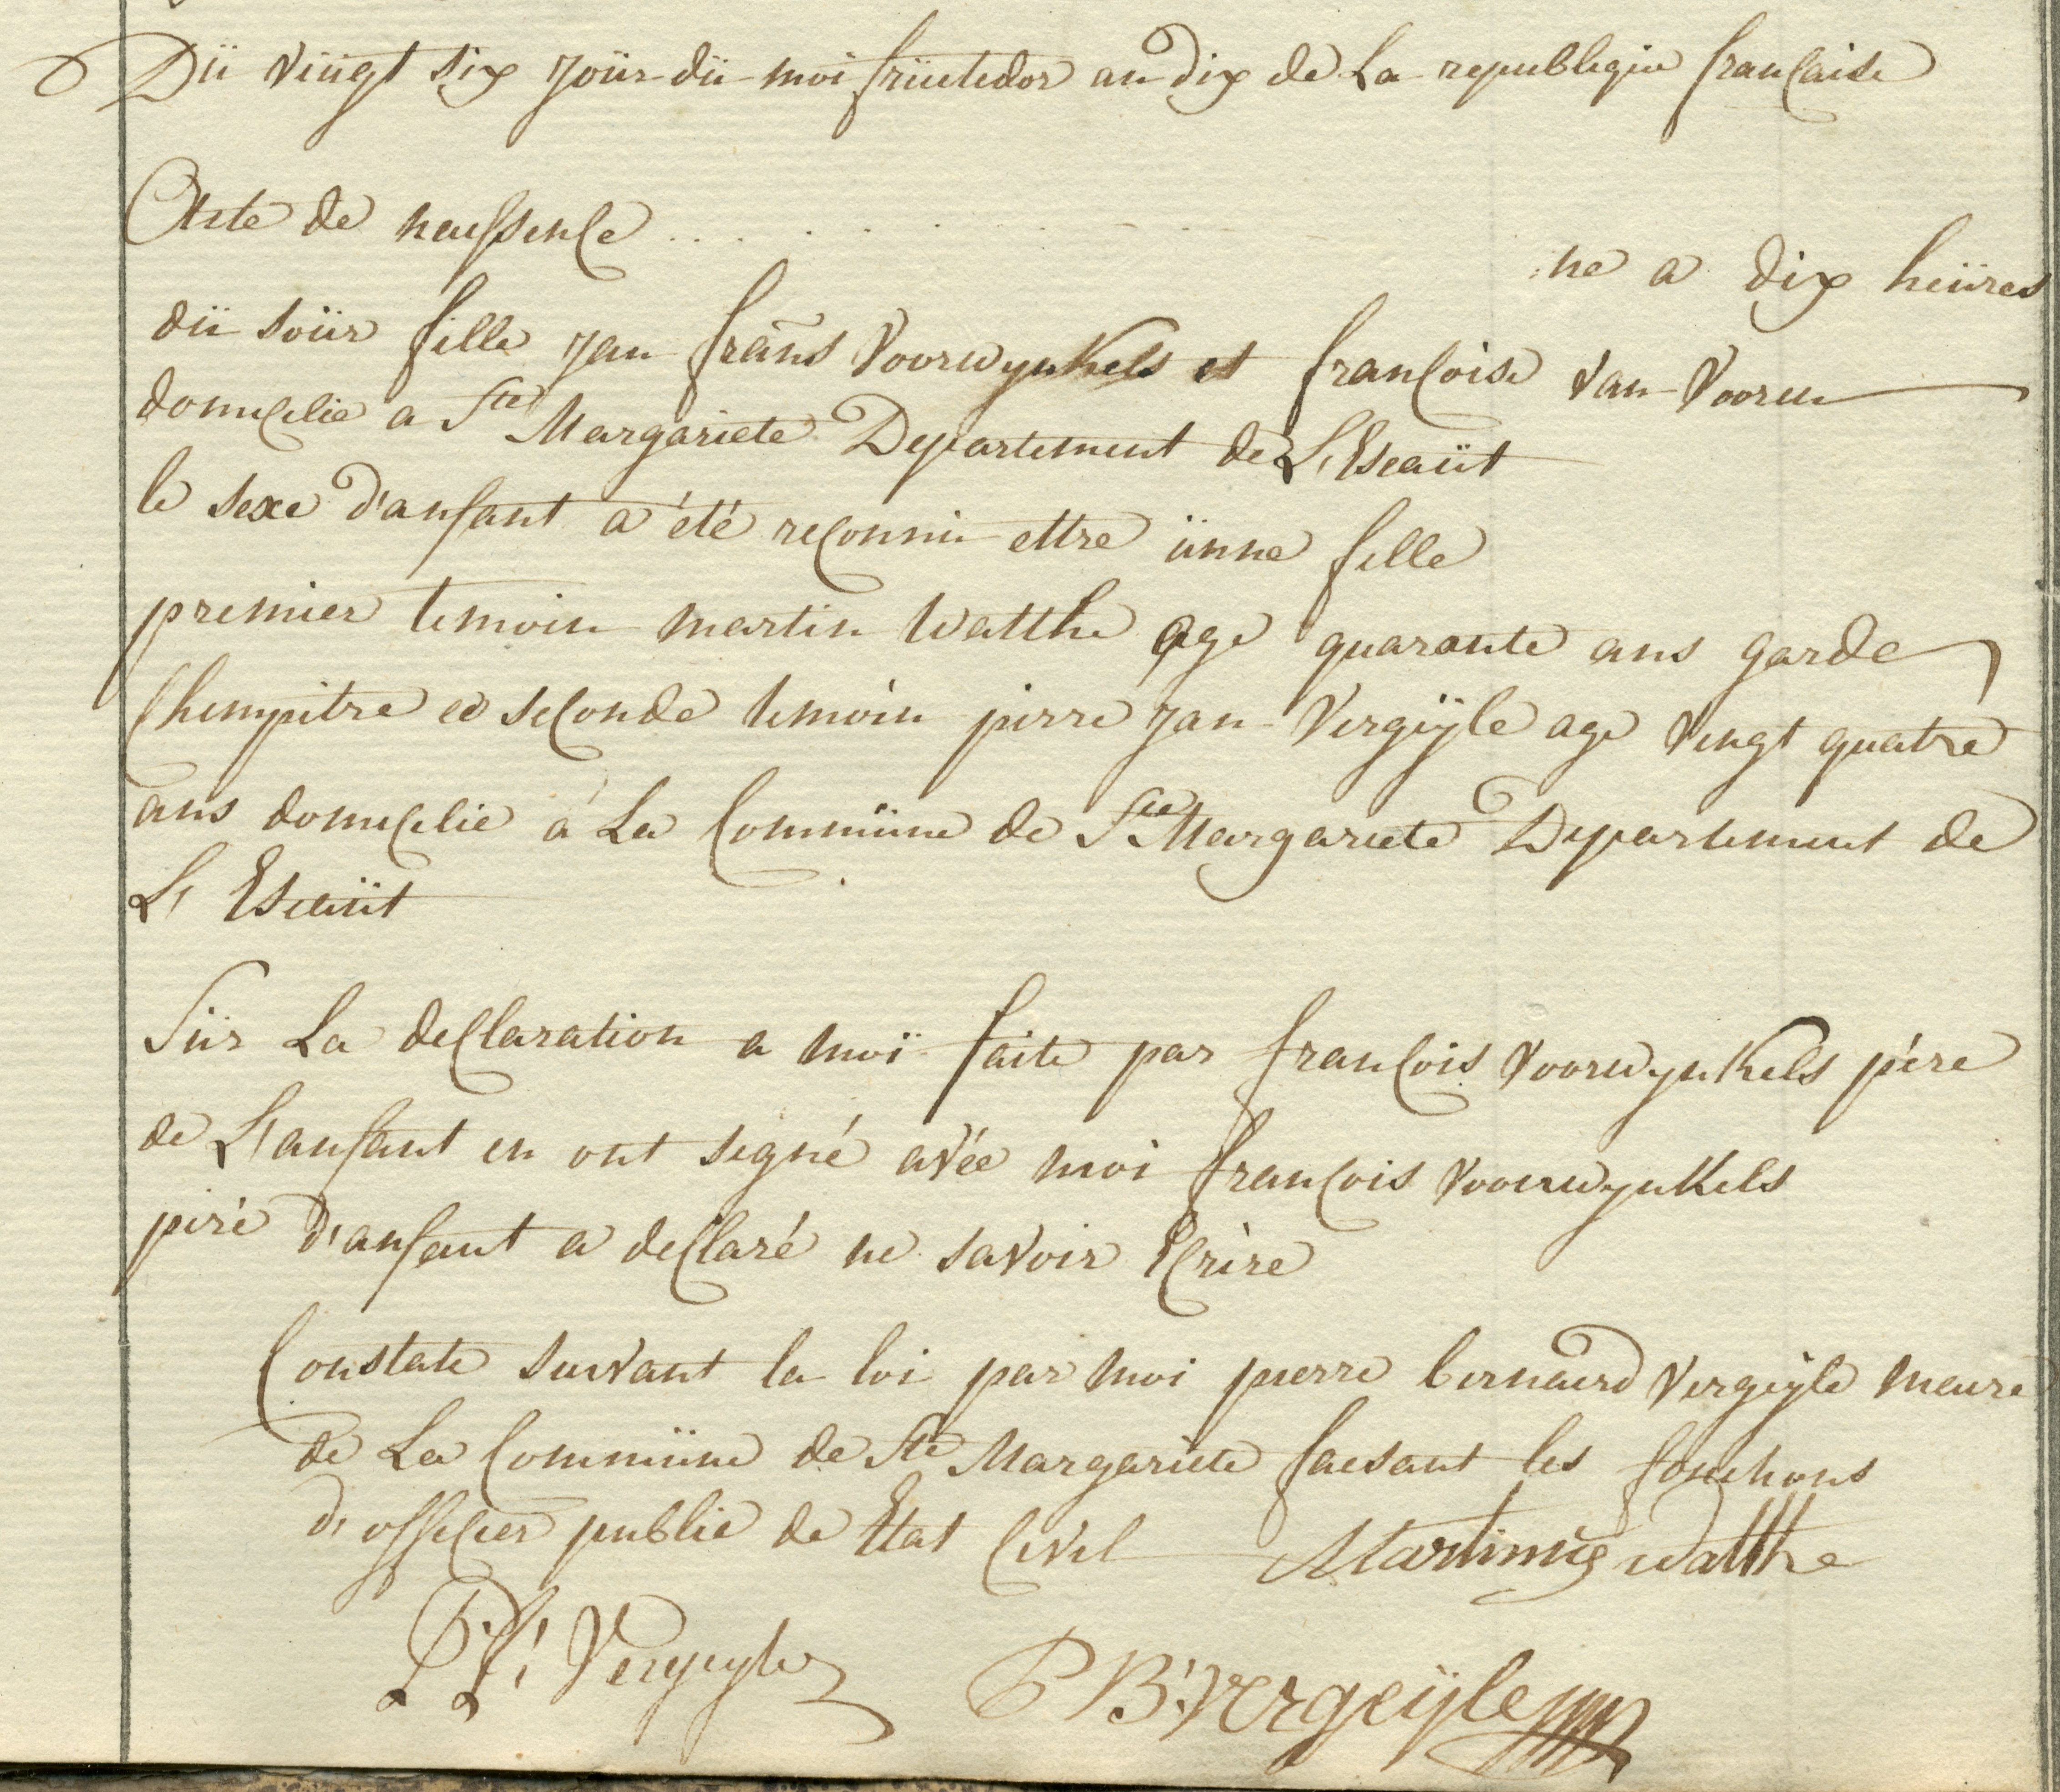 Dü vüngt six jour dü moi früctedor an dix de La republiqüe française
Acte de naissençe . . . . . . . . . . né a dix heüres
dü soür fille jan frans Voorwynkels et françoise van Vooren
domiçilie a Ste Margariete Departement de L'Escaüt
le sexe d'anfant a été reconnü ettre ünne fille
premier temoin martin Watthe age quarante ans garde
Chempitre et seconde temoin pierre jan Vergeÿle age vingt quatre
ans domiçilie á La Commüne de Ste Margariete Departement de
L' Escaüt
Sür La declaration a moï faite par françois Voorwynkels pére
de L'anfant en ont signé avéc moi françois Voorwynkels
peré d'anfant a declaré ne savoir Ecrire
Constate suivant la loi par moi pierre bernard Vergeyle maire
de La Commüne de Ste Margariete faisant les fonctions
d'officier public de Etat Civil Martinus Watthe
P J: Vergeyle P B: Vergeÿle